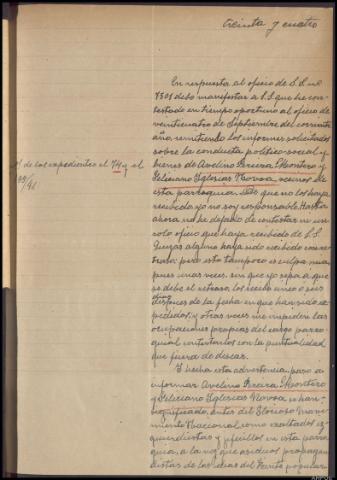 treinta y cuatro
En respuesta al oficio de S.S. nº
4501 debo manifestar a S.S. que he con-
testado en tiempo oportuno al oficio de
veinticuatro de Septiembre del corriente
año, remitiendo los informes solicitados
sobre la conducta político-social y
bienes de Avelino Pereira Montero y
de los expedientes el 74 y el
Feliciano Iglesias Novoa, vecinos de
esta parroquia. De que no los haya
recibido yo no soy responsable. Hasta
ahora no he dejado de contestar ni un
solo oficio que haya recibido de S.S.
Quizás alguno haya sido recibido con re-
traso; pero esto tampoco es culpa mía
pues unas veces, sin que yo sepa a que
se debe el retraso, los recibo cinco o seis
dias
despues de la fecha en que han sido ex-
pedidos, y otras veces me impiden las
ocupaciones propias del cargo parro-
quial contestarlos con la puntualidad
que fuera de desear.
Y hecha esta advertencia, paso a
informar: Avelino Pereira Montero
y Feliciano Iglesias Novoa se han
significado, antes del Glorioso Movi-
miento Nacional, como exaltados iz-
quierdistas y jefecillos en esta parro-
quia, a la vez que asiduos propagan-
distas de las ideas del Frente popular.